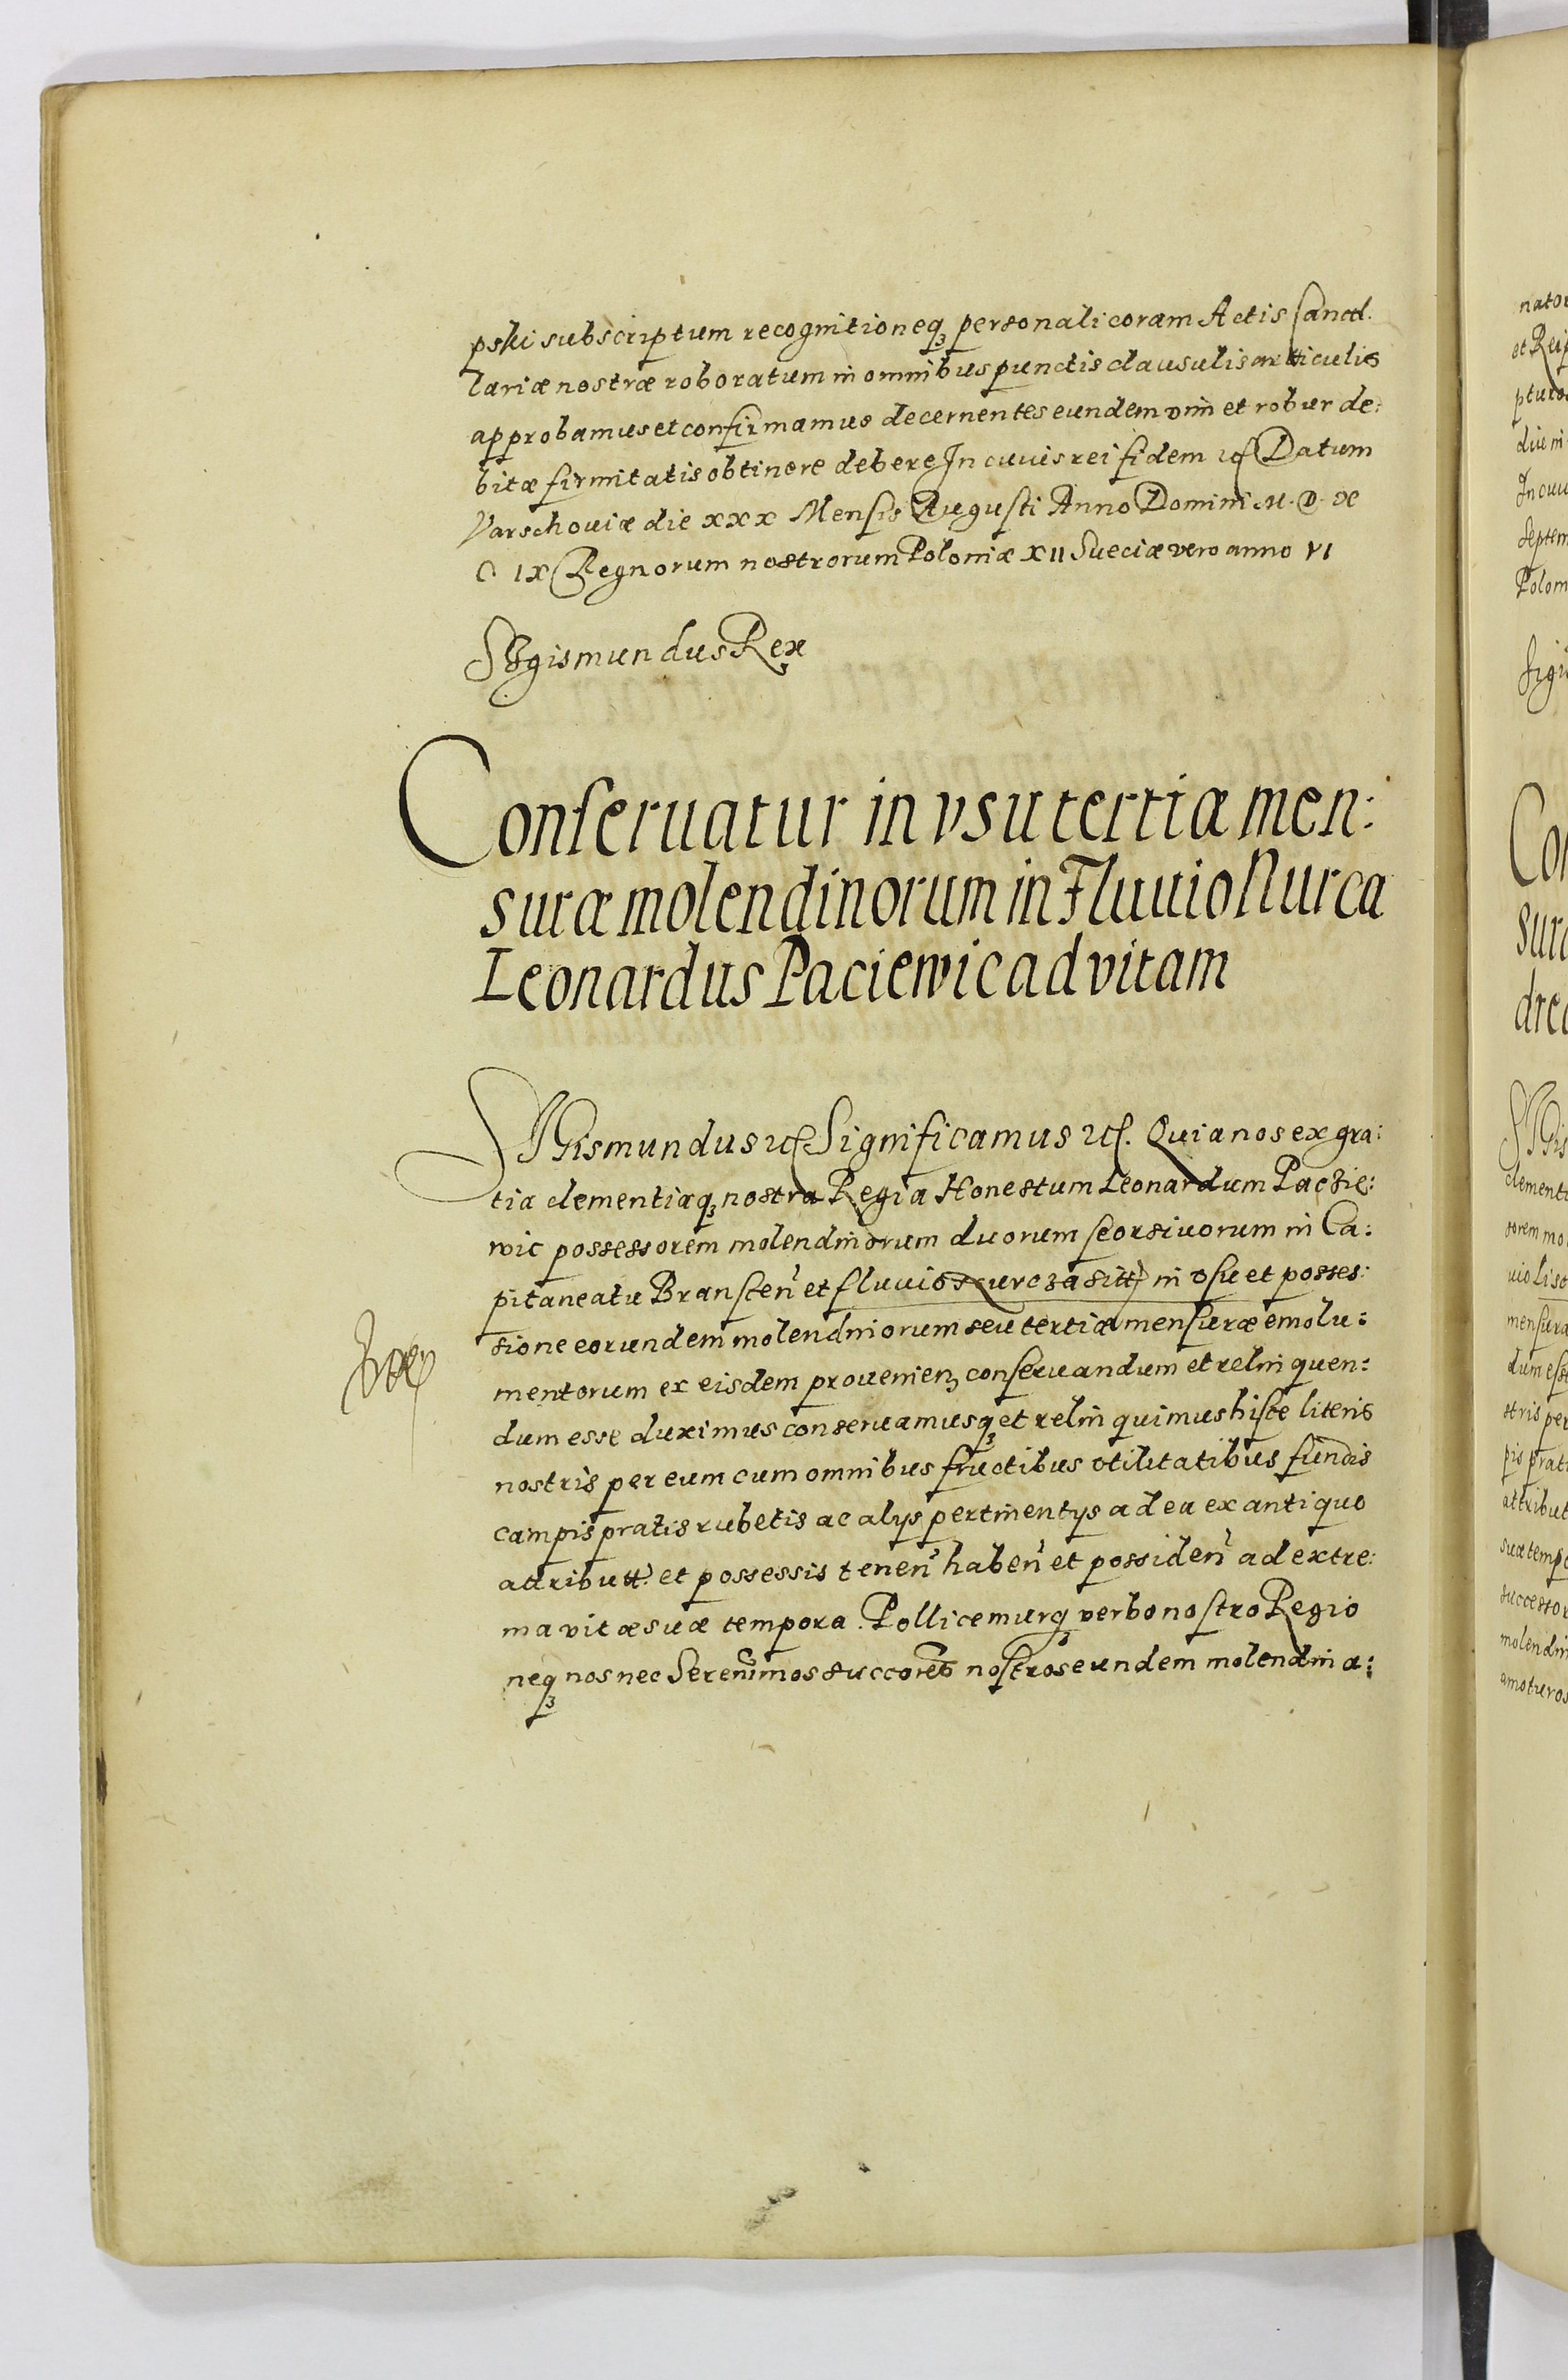 pski subscriptum recognitioneq₃ personali coram Actis Cancel.
lariæ nostræ roboratum in omnibus punctis clausulis articulis
approbamus et confirmamus decernentes eundem vim et robur de:
bitæ firmitatis obtinere debere In cuuis rei fidem etc Datum
Varschouiæ die xxx Mensis Augusti Anno Domini M. D. X
C IX Regnorum nostrorum Poloniæ XII Sueciæ vero anno VI
Sigismundus Rex
Conseruatur in vsu tertiæ men:
suræ molendinorum in Fluuio Nurca
Leonardus Paciewic ad vitam
Sigismundus etc Significamus etc. Quia nos ex gra:
tia clementiaq₃ nostra Regia Honestum Leonardum Paczie:
wic possessorem molendinorum duorum seorsiuorum in Ca:
pitaneatu Branscen et fluuio Nurcza sitt in vsu et posses:
sione eorundem molendinorum seu tertiæ mensuræ emolu:
mentorum ex eisdem prouenien₃ conseruandum et relinquen:
dum esse duximus conseruamusq₃ et relinquimus hisce literis
nostris per eum cum omnibus fructibus vtilitatibus fundis
campis pratis rubetis ac alijs pertinentijs ad ea ex antiquo
attributt. et possessis tenen haben et possiden ad extre:
ma vitæ suæ tempora. Pollicemurq₃ verbo nostro Regio
neq₃ nos nec Serenimos succores nostros eundem molendina:
nator
et Reip
pturos
die ni
In cuu
Septem
Polon
Sigis
Con
sura
drea
Sigis
clementi
sorem mo
uio Lisc
mensura
dum ess
stris per
pis prati
attribut
suæ tempo
successor
molendin
amoturos